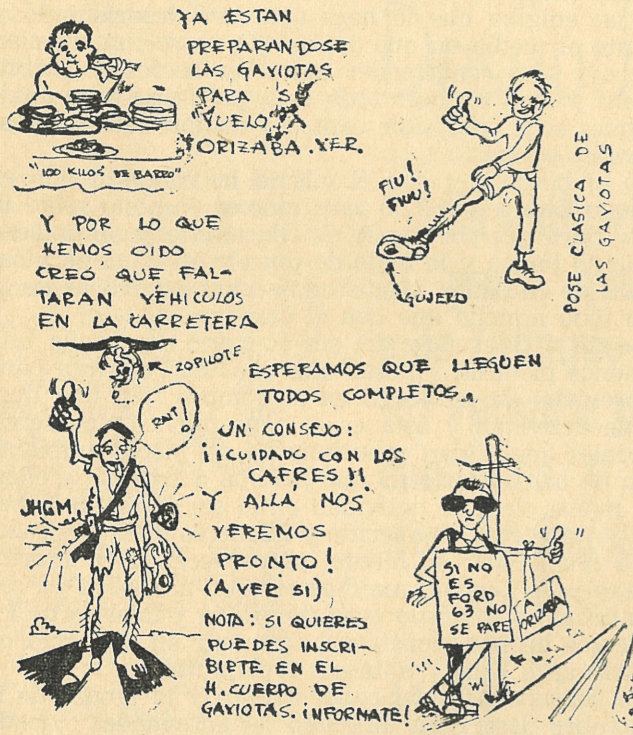 YA ESTAN
PREPARANDOSE
LAS GAVIOTAS
PARA SU
VUELO A
ORIZABA.VER.
"100 KILOS DE BARRO"
FIU!
FIUU!
GUJERO
POSE CLASICA DE
LAS GAVIOTAS
Y POR LO QUE
HEMOS OIDO
CREO QUE FAL-
TARAN VEHICULOS
EN LA CARRETERA
ZOPILOTE
RAIT!
JHGM
ESPERAMOS QUE LLEGUEN
TODOS COMPLETOS..
UN CONSEJO:
¡¡CUIDADO CON LOS
CAFRES!!
Y ALLÁ NOS
VEREMOS
PRONTO!
(A VER SI)
NOTA: SI QUIERES
PUEDES INSCRI-
BIRTE EN EL
H. CUERPO DE
GAVIOTAS. INFORMATE!
SI NO
ES
FORD
63 NO
SE PARE
A
ORIZABA